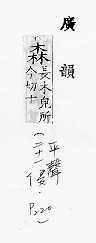 廣韻
森
長木皃所
今切十
(平聲
二十一
侵.
P220)